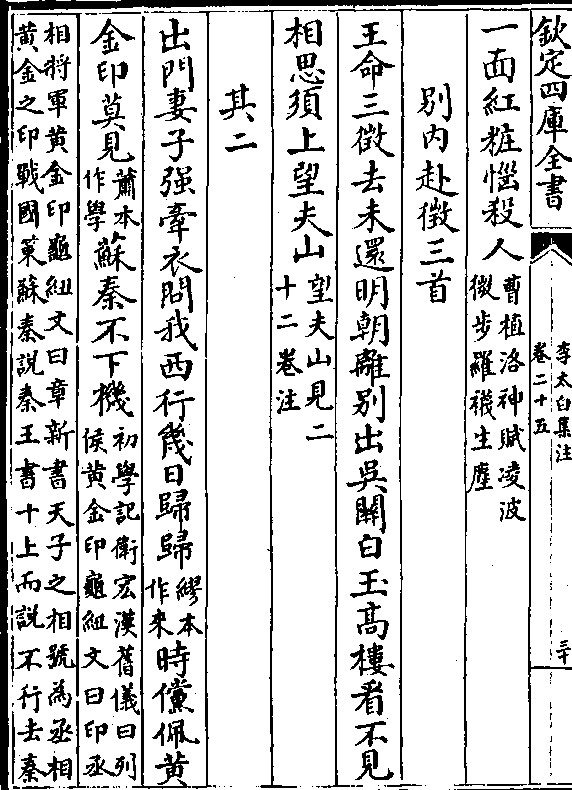 欽定四庫全書
李太白集注
卷二十五
三十
一面紅粧惱殺人曹植洛神賦凌波
微步羅襪生塵
別内赴徵三首
王命三徵去未還明朝離別出吳關白玉高樓看不見
相思須上望夫山望夫山見二
十二卷注
其二
出門妻子强牽衣問我西行幾日歸歸繆本
作來時儻佩黄
金印莫見蕭本
作學蘇秦不下機初學記衛宏漢舊儀曰列
侯黄金印龜紐文曰印丞
相將軍黄金印龜紐文曰章新書天子之相號為丞相
黄金之印戰國策蘇秦說秦王書十上而說不行去秦